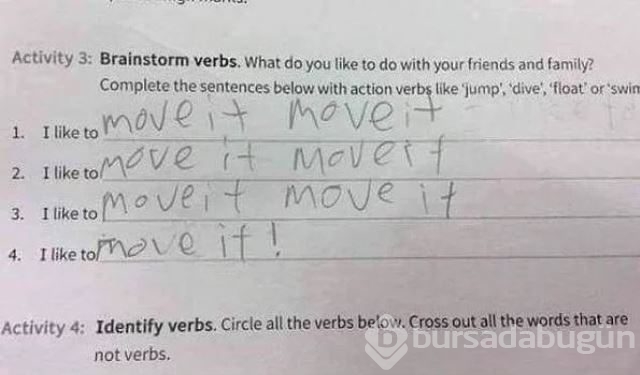 Activity 3: Brainstorm verbs. What do you like to do with your friends and family?
Complete the sentences below with action verbs like 'jump', 'dive', 'float' or 'swim
1. I like to move it move it
2. I like to move it move it
3. I like to move it move it
4. I like to move it!
Activity 4: Identify verbs. Circle all the verbs below. Cross out all the words that are
not verbs.
b bursadabugün